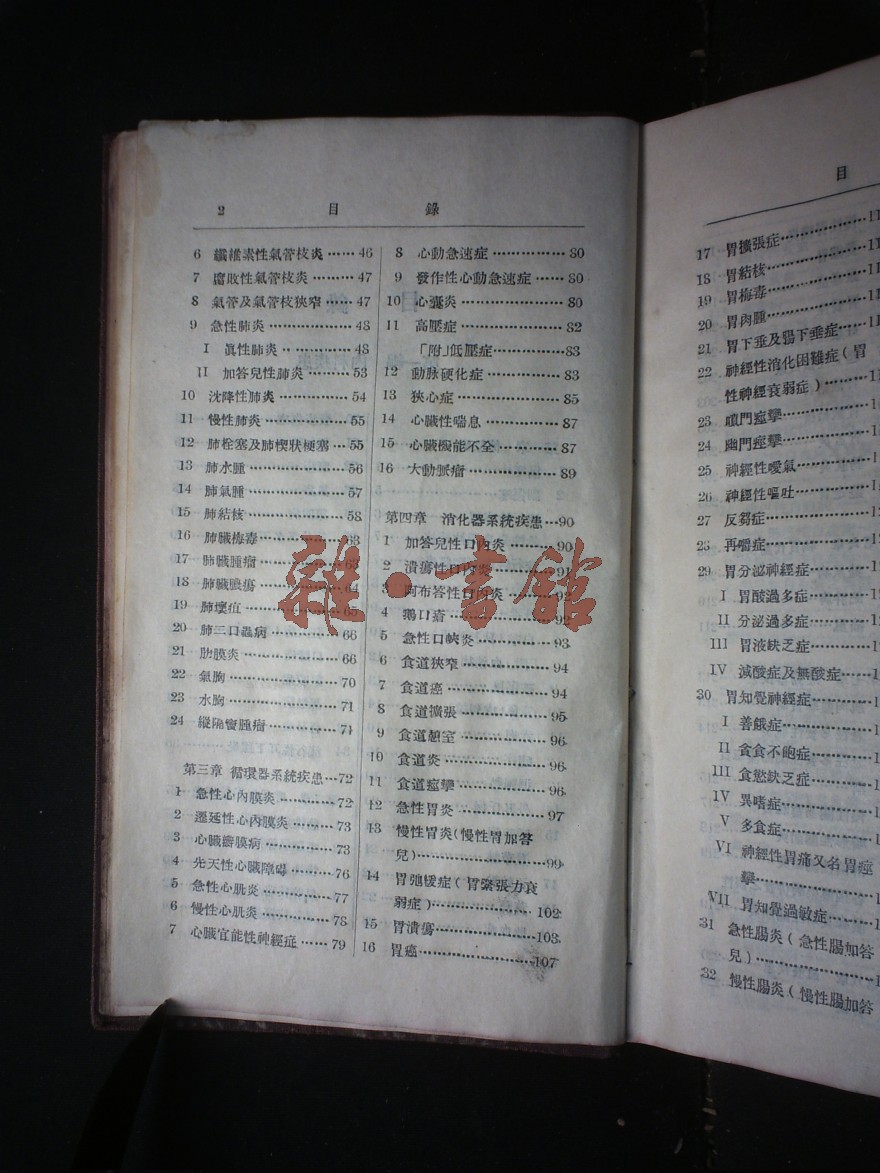 2 目 錄
6 纖維素性氣管枝炎……46
7 腐敗性氣管枝炎………47
8 氣管及氣管枝狹窄……47
9 急性肺炎………………48
I 眞性肺炎………………48
II 加答兒性肺炎…………53
10 沈降性肺炎……………54
11 慢性肺炎………………55
12 肺栓塞及肺楔狀梗塞…55
13 肺水腫…………………56
14 肺氣腫…………………57
15 肺結核…………………58
16 肺臟梅毒………………63
17 肺臟腫瘤………………63
18 肺臟膿瘍………………64
19 肺壞疽…………………65
20 肺二口蟲病……………66
21 肋膜炎…………………66
22 氣胸……………………70
23 水胸……………………71
24 縱隔竇腫瘤……………71
第三章 循環器系統疾患…72
1 急性心內膜炎…………72
2 遷延性心內膜炎………73
3 心臟瓣膜病……………73
4 先天性心臟障碍………76
5 急性心肌炎……………77
6 慢性心肌炎……………78
7 心臟官能性神經症……79
8 心動急速症……………80
9 發作性心動急速症……80
10 心囊炎…………………80
11 高壓症…………………82
「附」低壓症……………83
12 動脉硬化症……………83
13 狹心症…………………85
14 心臟性喘息……………87
15 心臟機能不全…………87
16 大動脈瘤………………89
第四章 消化器系統疾患…90
1 加答兒性口內炎………90
2 潰瘍性口內炎…………91
3 阿布答性口內炎………92
4 鵝口瘡…………………92
5 急性口峽炎……………93
6 食道狹窄………………94
7 食道癌…………………94
8 食道擴張………………95
9 食道憩室………………96
10 食道炎…………………96
11 食道痙攣………………96
12 急性胃炎………………97
13 慢性胃炎(慢性胃加答
兒)………………………99
14 胃弛緩症(胃緊張力衰
弱症)……………………102
15 胃潰瘍…………………103
16 胃癌……………………107
目
17 胃擴張症………………11
18 胃結核…………………11
19 胃梅毒…………………11
20 胃肉腫…………………11
21 胃下垂及腸下垂症……11
22 神經性消化困難症(胃
性神經衰弱症)…………1
23 噴門痙攣………………1
24 幽門痙攣………………1
25 神經性噯氣……………1
26 神經性嘔吐……………1
27 反芻症…………………12
28 再嚼症…………………12
29 胃分泌神經症…………12
I 胃酸過多症……………12
II 分泌過多症……………12
III 胃液缺乏症……………1
IV 減酸症及無酸症………1
30 胃知覺神經症…………1
I 善餓症…………………1
II 貪食不飽症……………1
III 食慾缺乏症……………1
IV 異嗜症…………………1
V 多食症…………………1
VI 神經性胃痛又名胃痙
攣………………………1
VII 胃知覺過敏症…………1
31 急性腸炎(急性腸加答
兒)………………………1
32 慢性腸炎(慢性腸加答
雜·書館